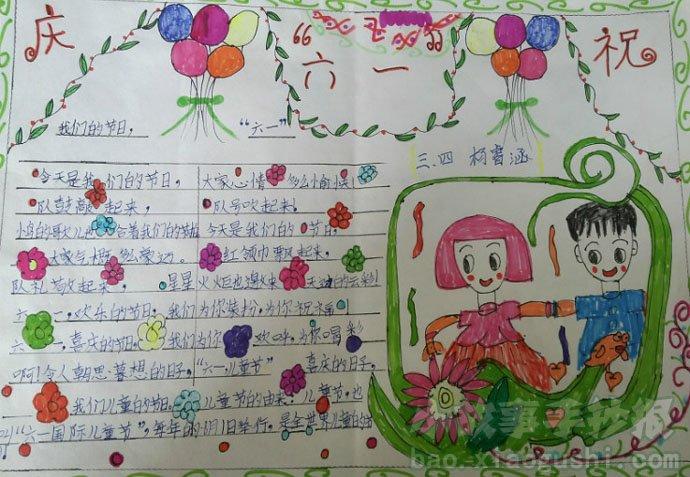 庆 “六一” 祝
我们的节日, “六一”
三.四 杨霄涵
今天是我们的节日, 大家心情多么愉快!
队鼓敲起来, 队号吹起来!
今天是我们的节日,
红领巾飘起来,
队礼敬起来, 星星火炬
六一, 欢乐的节日, 我们为你装扮, 为你祝福!
六一, 喜庆的节日, 我们为你欢呼, 为你喝彩
啊! 令人朝思暮想的日子, “六一儿童节” 喜庆的日子,
我们儿童的节日。 儿童节的由来: 儿童节, 也
叫“六一国际儿童节”, 每年的6月1日举行, 是全世界儿童的节
故事手抄报
bao.xiaogushi.com